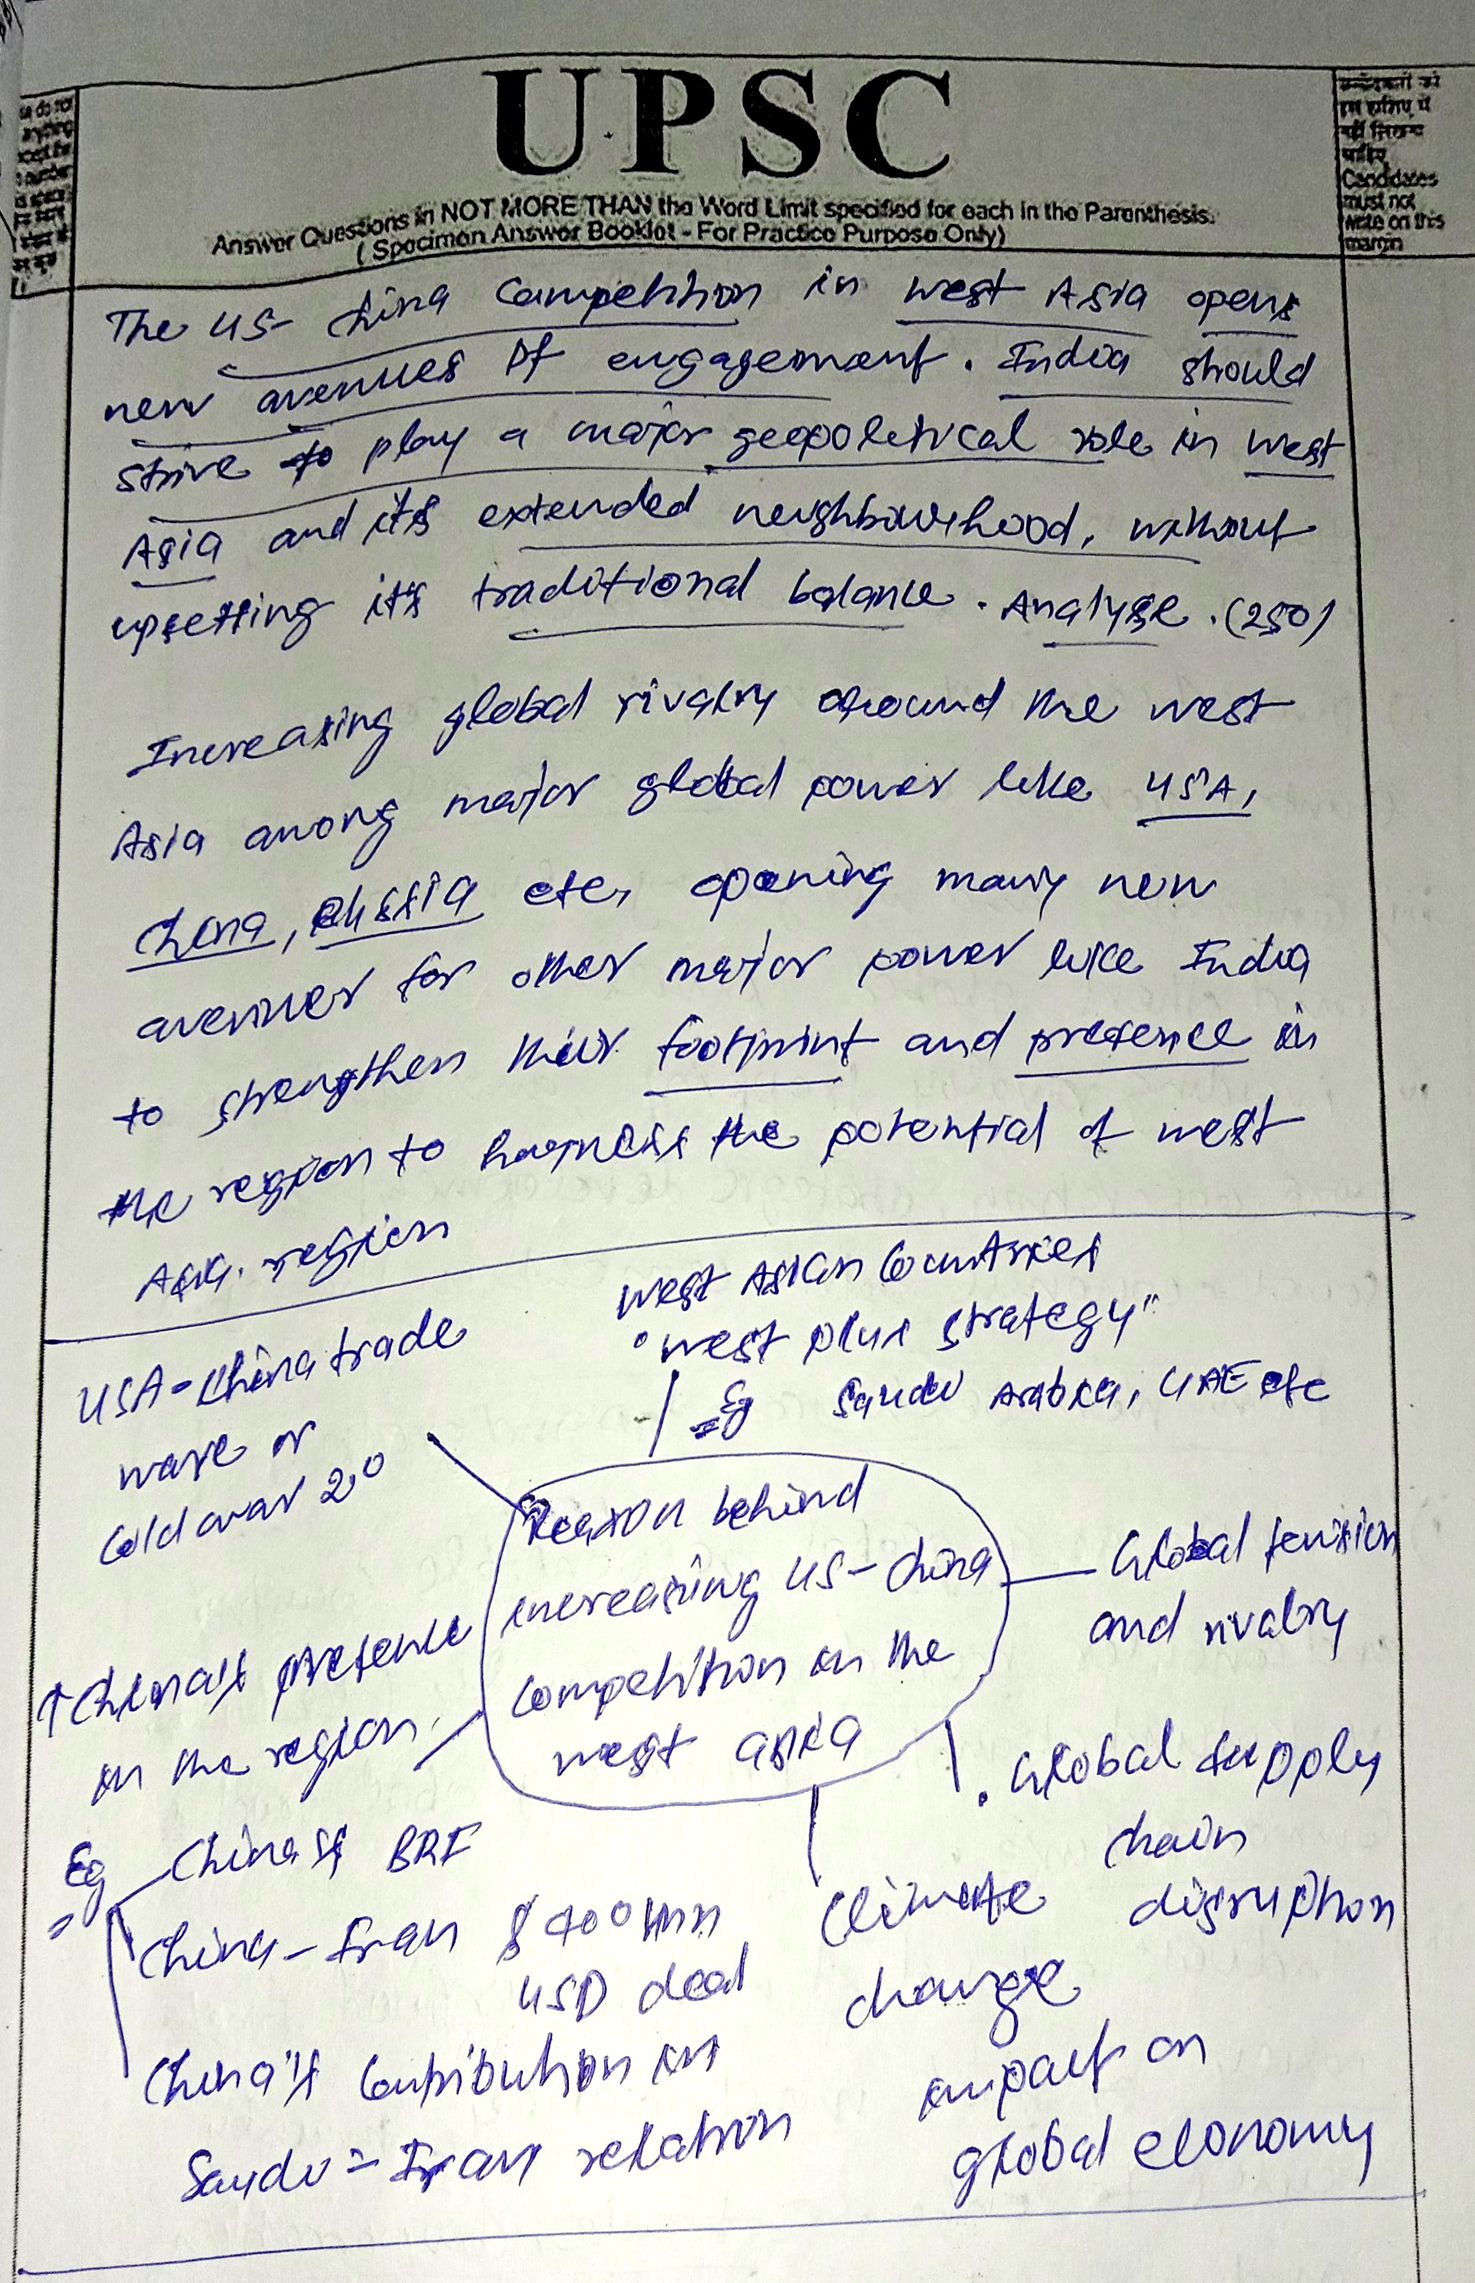 UPSC
Answer Questions in NOT MORE THAN the Word Limit specified for each in the Parenthesis.
( Specimen Answer Booklet - For Practice Purpose Only)
Candidates
must not
write on this
margin
The US- China Competition in West Asia opens
new avenues of engagement. India should
strive to play a major geopolitical role in West
Asia and it's extended neighbourhood, without
upsetting it's traditional balance. Analyse. (250)
Increasing global rivalry around the west
Asia among major global power like USA,
China, Russia etc, opening many new
avenues for other major power like India
to strengthen their footprint and presence in
the region to harness the potential of west
Asia region
West Asian Countries
"west plus strategy"
Eg Saudi Arabia, UAE etc
USA-China trade
ware or
Cold war 2.0
Reason behind
increasing US-China
Competition in the
west asia
Global tension
and rivalry
↑ China's presence
in the region
Eg China's BRI
China-Iran $400 mn
USD deal
China's Contribution in
Saudi-Iran relation
Global supply
chain
disruption
Climate
change
impact on
global economy